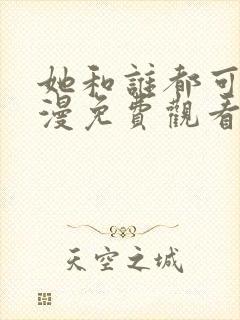 她和誰都可
漫免費觀看
天空之城